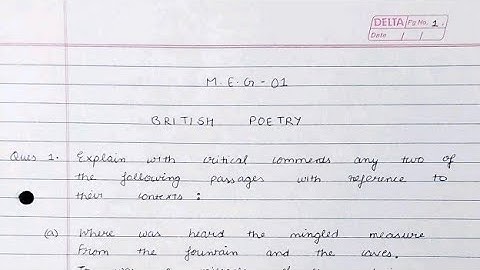 DELTA Pg No. 1.
Date / /
M.E.G-01
BRITISH POETRY
Ques 1. Explain with critical comments any two of
the following passages with reference to
their contexts :
(a) Where was heard the mingled measure
From the fountain and the caves.